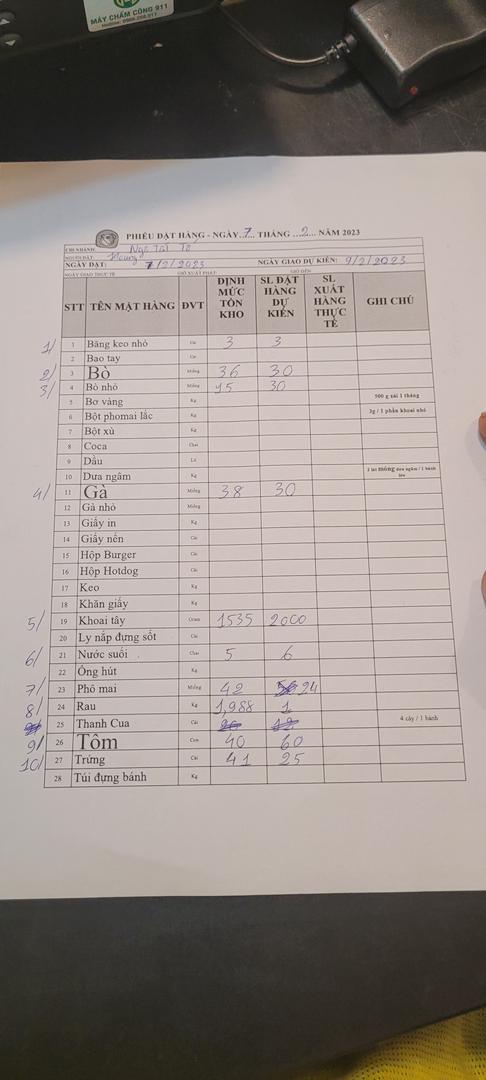 MÁY CHẤM CÔNG 911
PHIẾU ĐẶT HÀNG - NGÀY 7 THÁNG 2 NĂM 2023
CHI NHÁNH: Ngô Tất Tố
NGƯỜI ĐẶT:
NGÀY ĐẶT: 7/2/2023 NGÀY GIAO DỰ KIẾN: 9/2/2023
NGÀY GIAO THỰC TẾ GIỜ XUẤT PHÁT: GIỜ ĐẾN
STT TÊN MẶT HÀNG ĐVT ĐỊNH MỨC TỒN KHO SL ĐẶT HÀNG DỰ KIẾN SL XUẤT HÀNG THỰC TẾ GHI CHÚ
1/ 1 Băng keo nhỏ Cái 3 3
2 Bao tay Cái
2/ 3 Bò Miếng 36 30
3/ 4 Bò nhỏ Miếng 15 30
5 Bơ vàng Kg 500 g xài 1 tháng
6 Bột phomai lắc Kg 3g / 1 phần khoai nhỏ
7 Bột xù Kg
8 Coca Chai
9 Dầu
10 Dưa ngâm Kg 2 lát mỏng dưa ngâm / 1 bánh
4/ 11 Gà Miếng 38 30
12 Gà nhỏ Miếng
13 Giấy in Kg
14 Giấy nến Cái
15 Hộp Burger Cái
16 Hộp Hotdog Cái
17 Keo Kg
18 Khăn giấy Kg
5/ 19 Khoai tây Gram 1535 2000
20 Ly nắp đựng sốt Cái
6/ 21 Nước suối Chai 5 6
22 Ống hút Kg
7/ 23 Phô mai Miếng 42 24
8/ 24 Rau Kg 1,988 1
25 Thanh Cua Cái 26 12 4 cây / 1 bánh
9/ 26 Tôm Con 40 60
10/ 27 Trứng Cái 41 25
28 Túi đựng bánh Kg